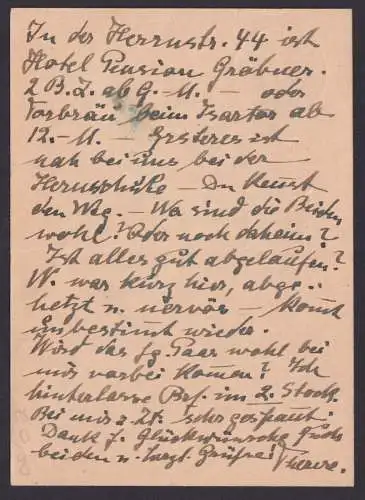 In der Herrnstr. 44 ist
Hotel Pension Gräbner.
2 B. Z. ab 9.- M. — oder
Torbräu beim Isartor ab
12.- M. — Ersteres ist
nah bei uns bei der
Hernschule — Du kennst
den Weg. — Wo sind die Beiden
wohl? Oder noch daheim?
Ist alles gut abgelaufen?
W. war kurz hier, abge-
hetzt u. nervös — kommt
unbestimt wieder.
Wird das jg. Paar wohl bei
mir vorbei komen? Ich
hinterlasse Brf. im 2. Stock.
Bei mir z. Zt. sehr gespannt.
Dank f. Glückwünsche Euch
beiden u. herzl. Grüsse!